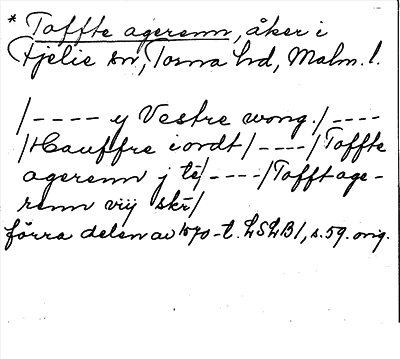 * Toffte agerenn, åker i
Fjelie sn, Torna hd, Malm. l.
/---- y Vestre wong./----
/Hauffre iordt/----/Toffte
agerenn j tē/----/Tofftage-
renn vij skr/
förra delen av 1570-t. LSLB1, s.59. orig.